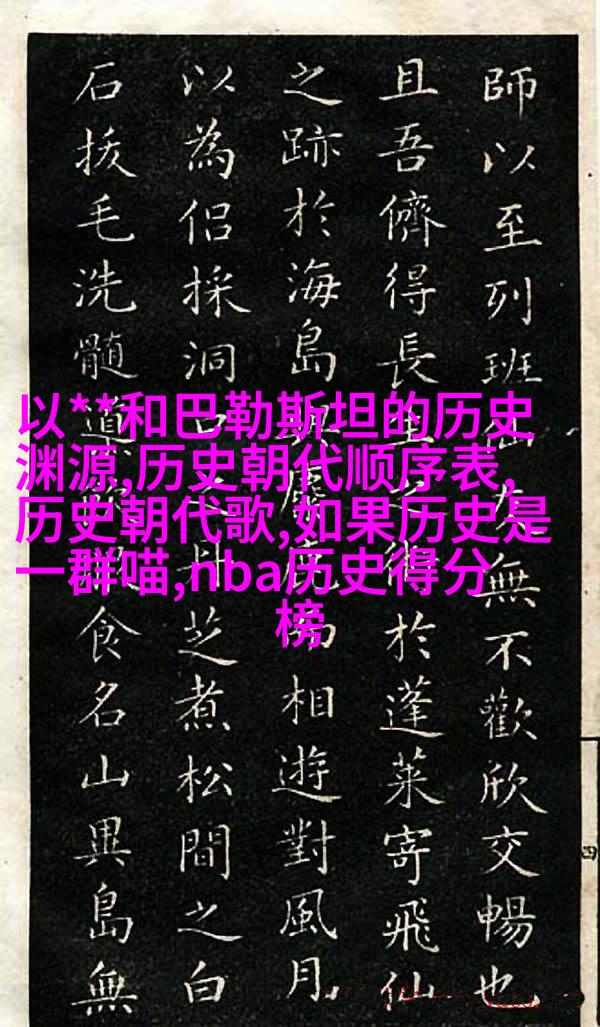 師以至列班仙無不歡欣交暢也
且吾儕得長於蓬萊寄飛仙
之跡於海島相遊對風月
以為侶採洞芝煮松間之白
石拔毛洗髓道食名山異島無
以**和巴勒斯坦的历史
渊源,历史朝代顺序表,
历史朝代歌,如果历史是
一群喵,nba历史得分
榜
四